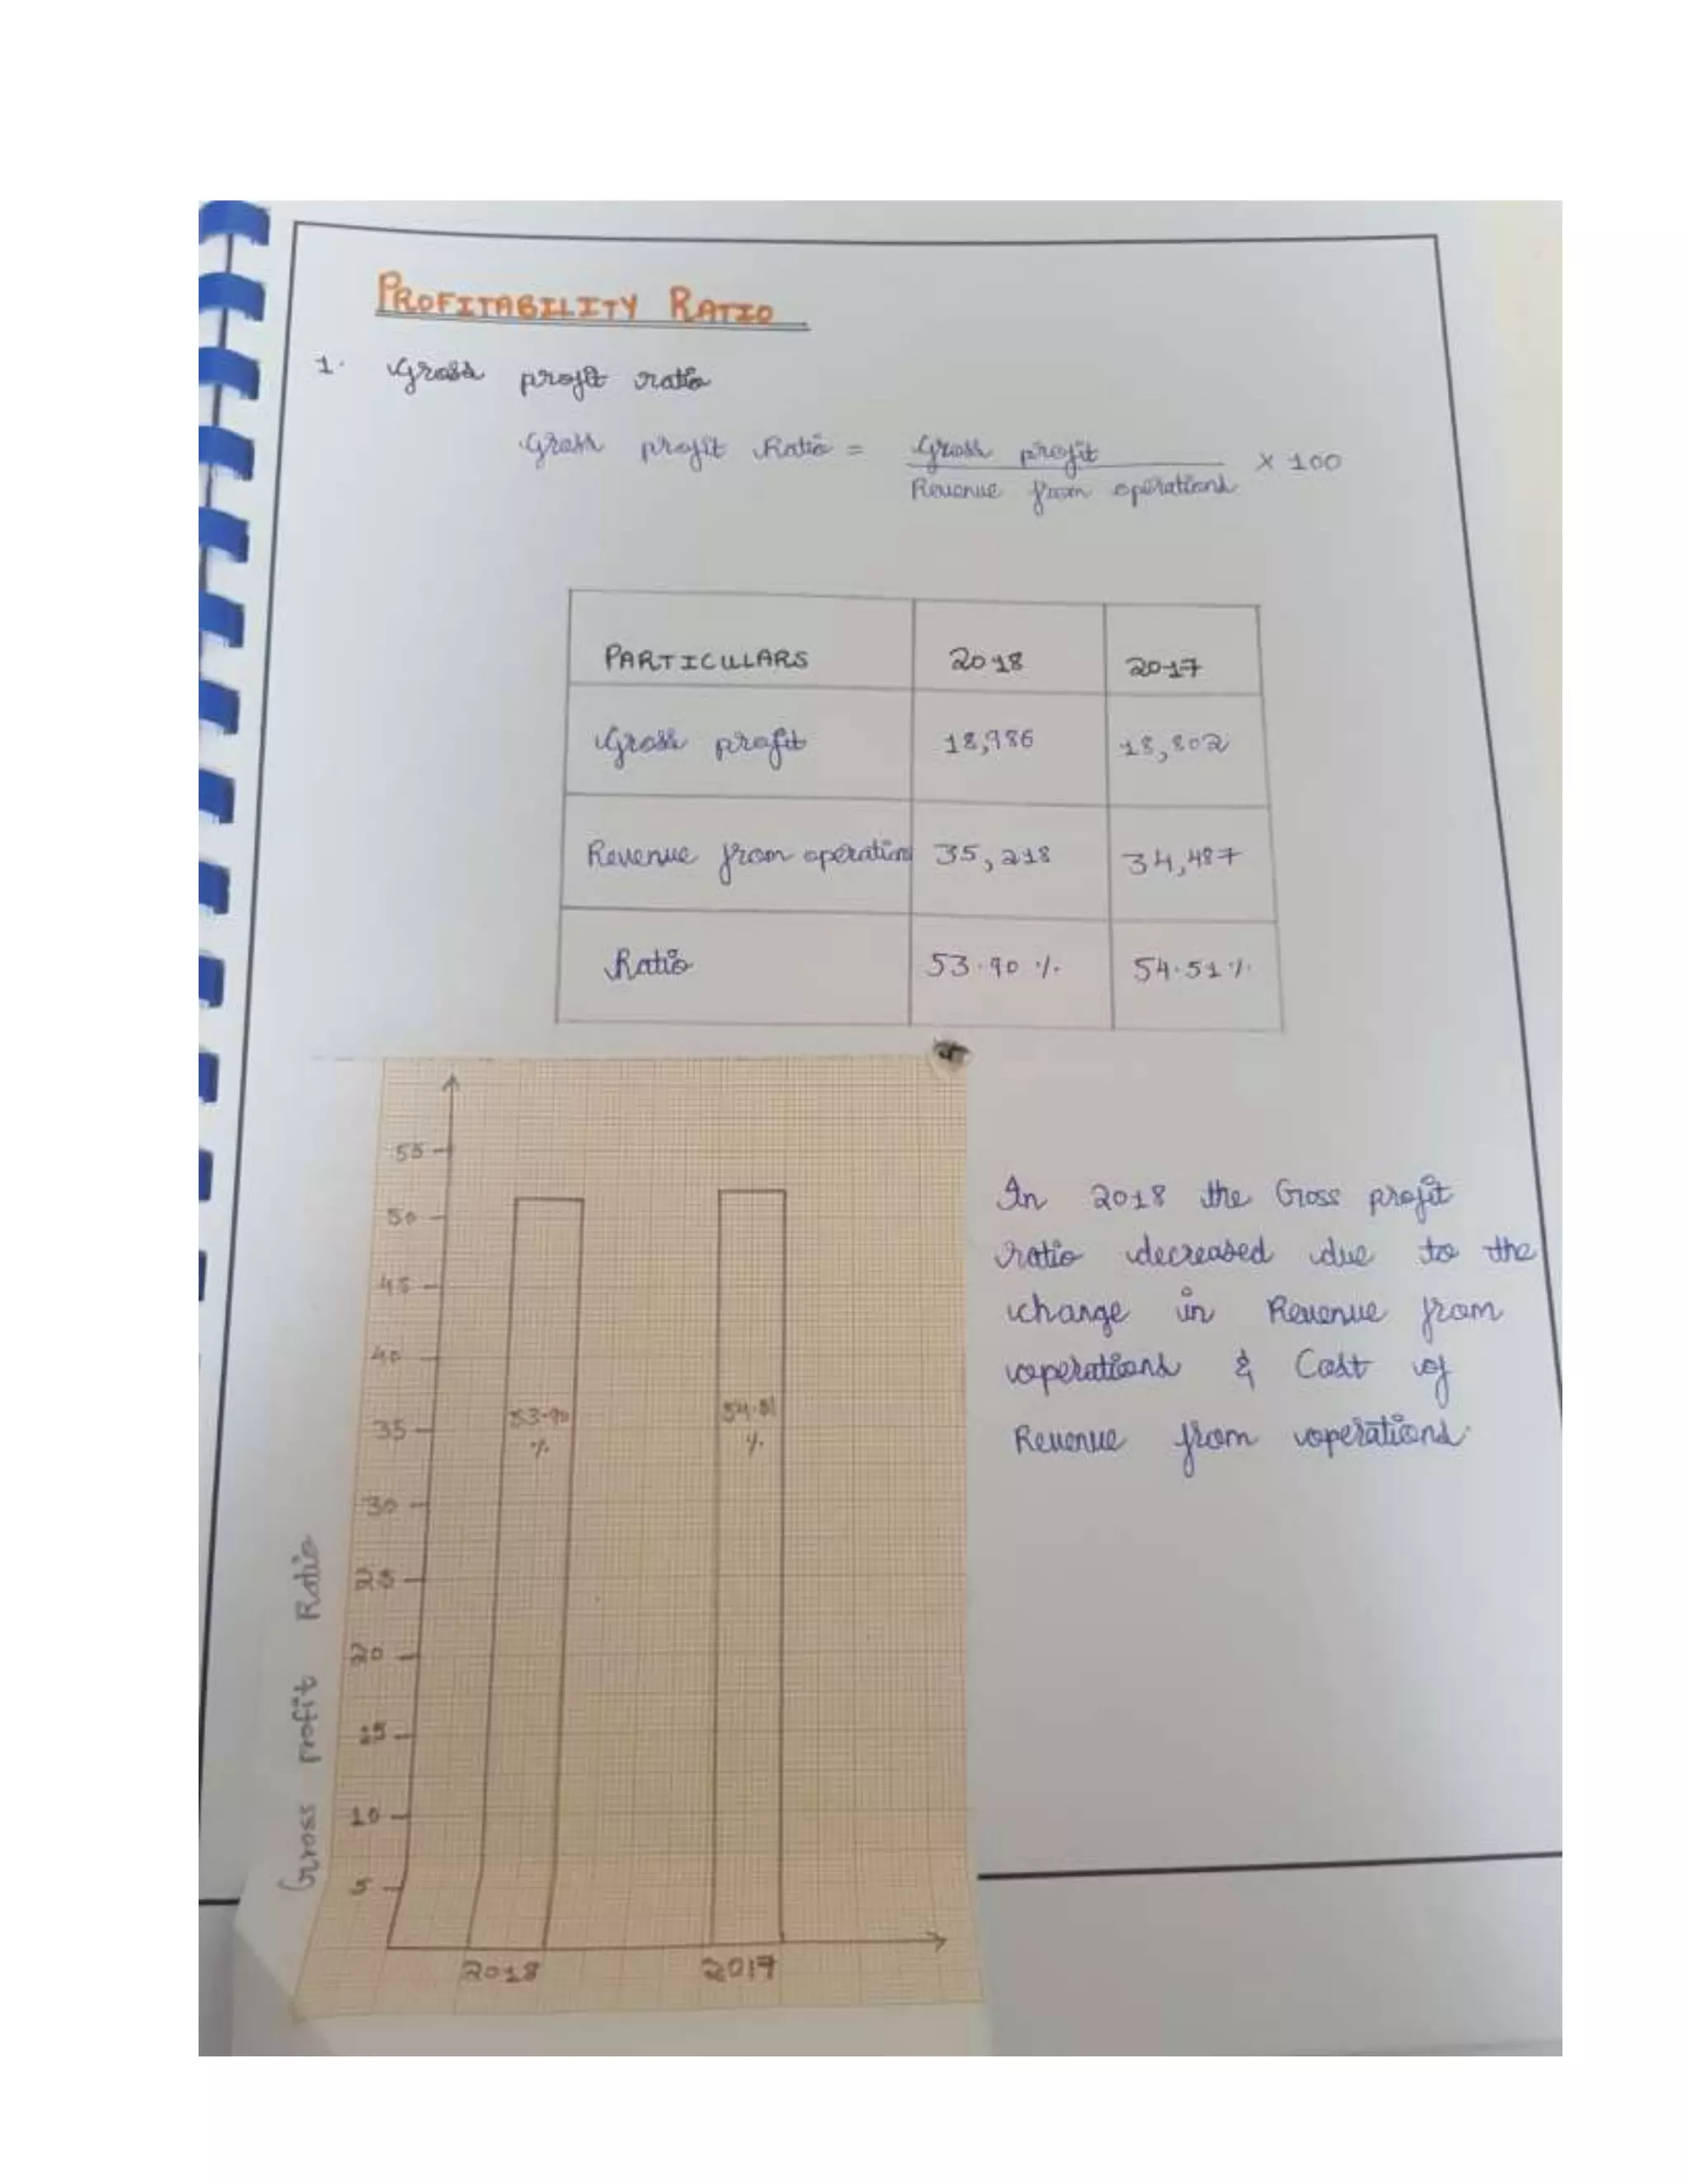 PROFITABILITY RATIO
1. Gross profit ratio
Gross profit Ratio = Gross profit × 100
Revenue from operations
PARTICULARS 2018 2017
Gross profit 18,986 18,802
Revenue from operations 35,218 34,487
Ratio 53.90 % 54.51 %
In 2018 the Gross profit
ratio decreased due to the
change in Revenue from
operations & Cost of
Revenue from operations.
Gross profit Ratio
55
50
45
40
35
30
25
20
15
10
5
53.90
%
54.51
%
2018 2017